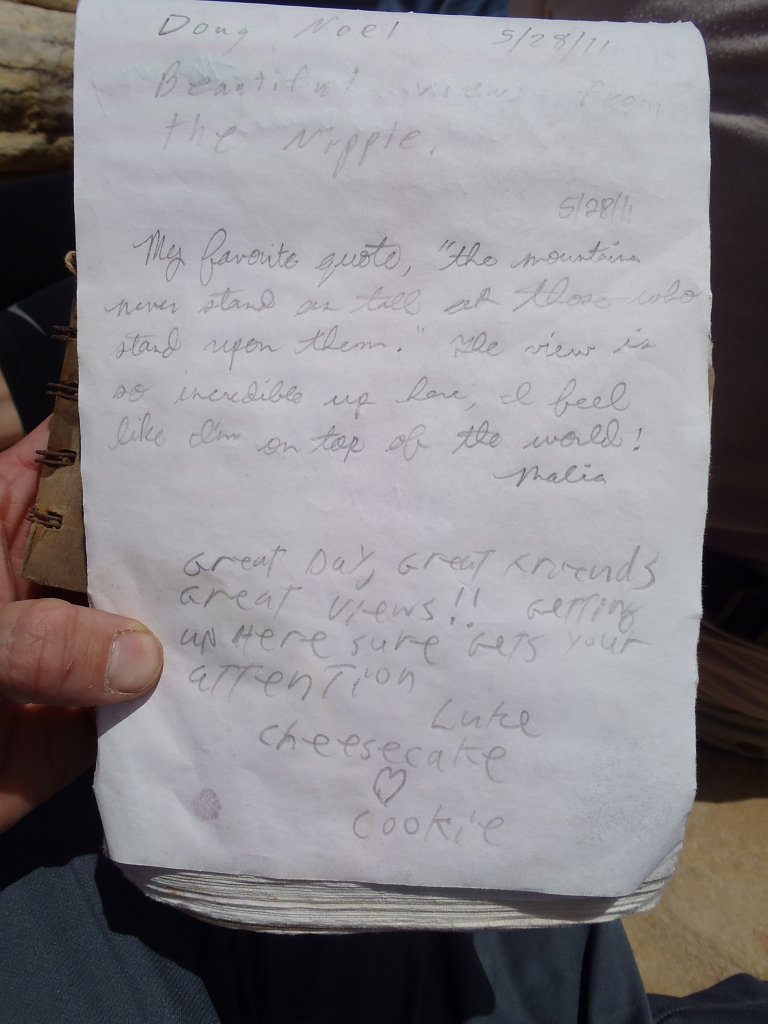 Doug Noel 5/28/11
Beautiful views from
the Nipple.
5/28/11
My favorite quote, "the mountains
never stand as tall as those who
stand upon them." The view is
so incredible up here, I feel
like I'm on top of the world!
Malia
Great Day, Great Friends
Great views!! Getting
up Here sure Gets your
attention
Luke
cheesecake
♡
cookie